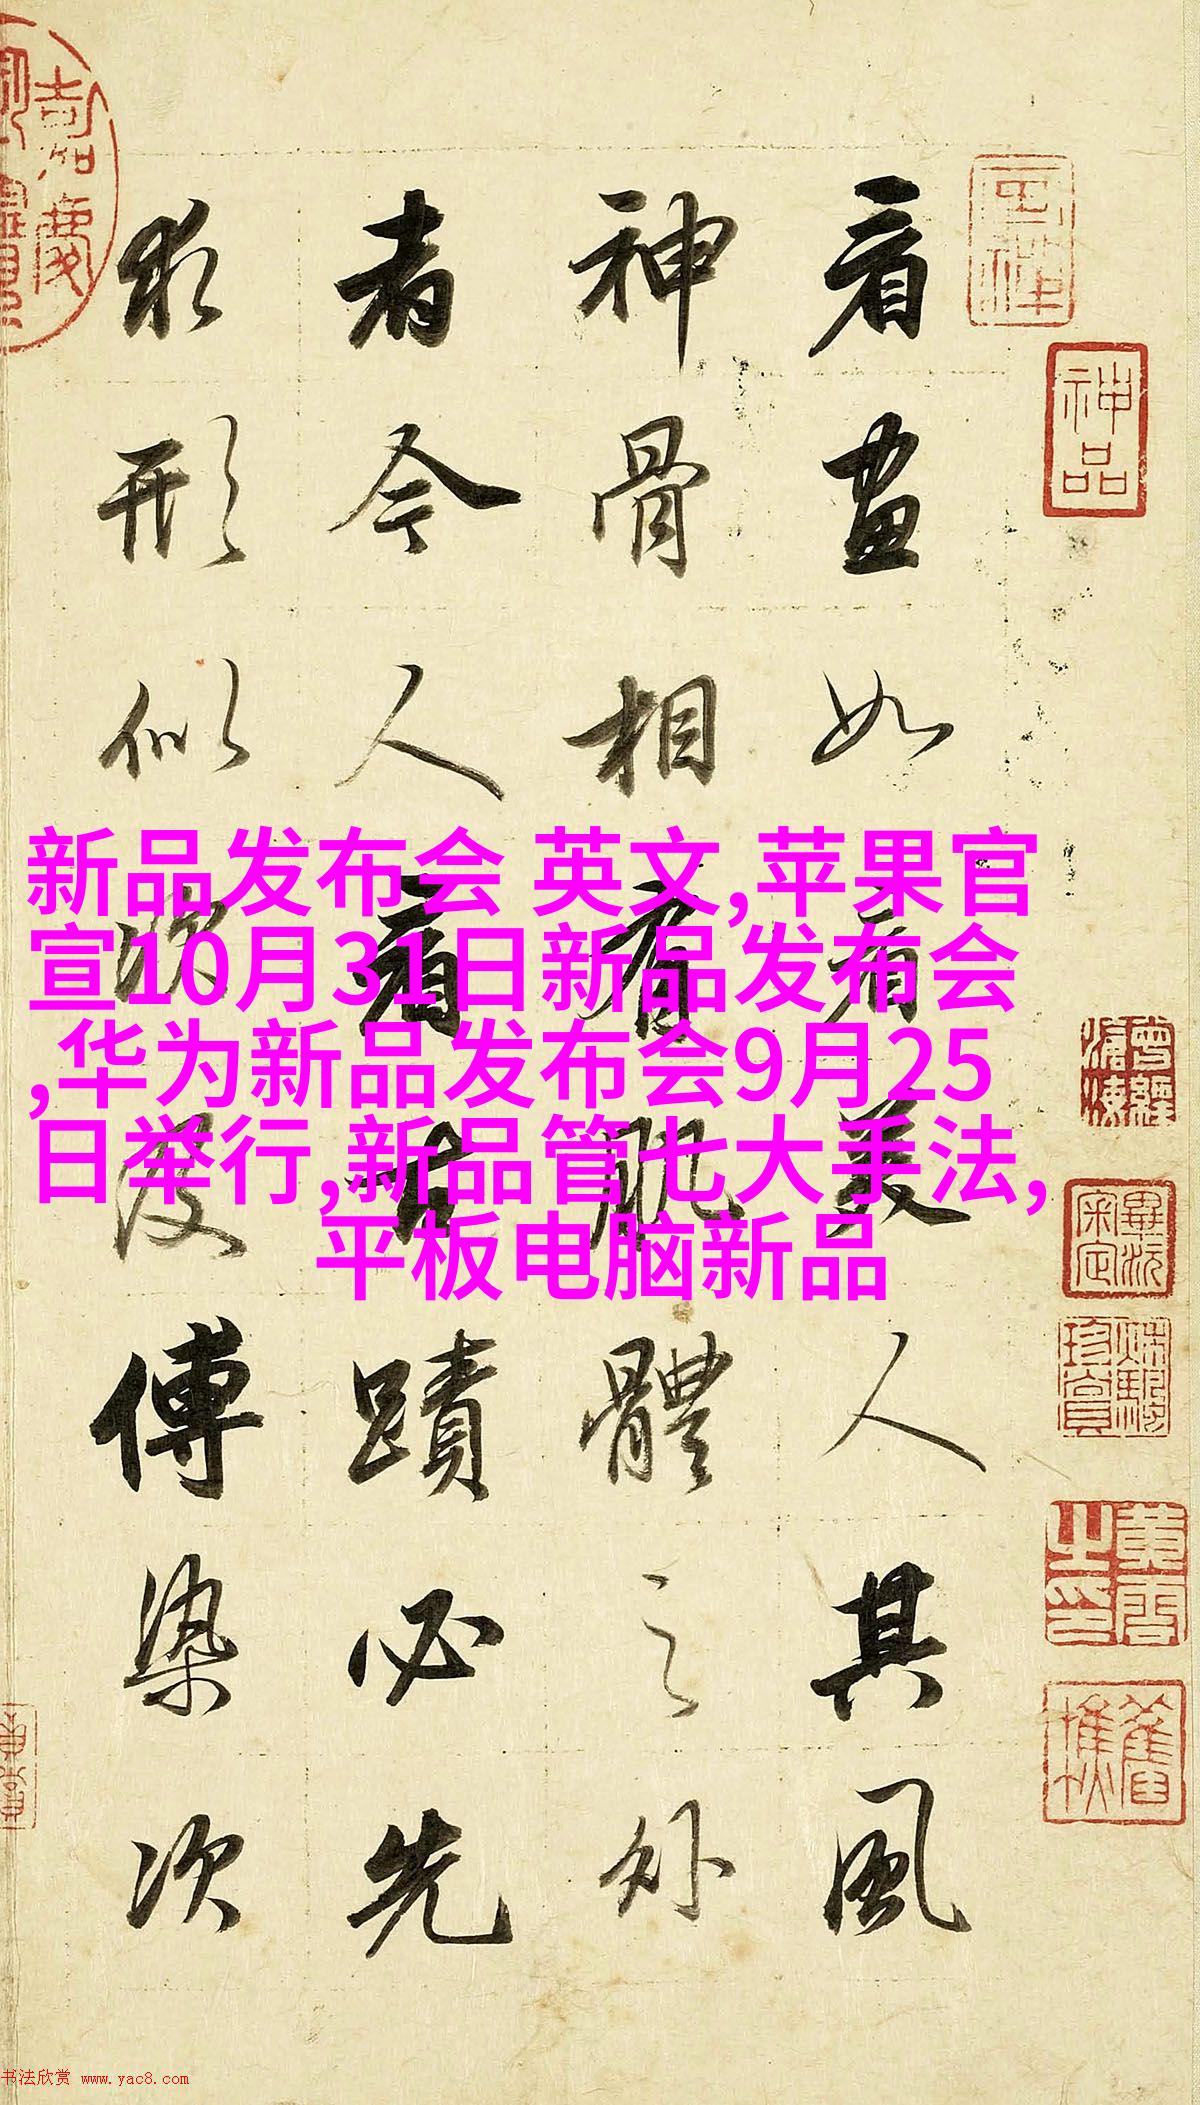 看画如看美人其風
神骨相有肌體之外
者今人看古蹟必先
求形似次及傅染次
新品发布会 英文,苹果官
宣10月31日新品发布会
,华为新品发布会9月25
日举行,新品管七大手法,
平板电脑新品
神品
嘉慶
书法欣赏 www.yac8.com